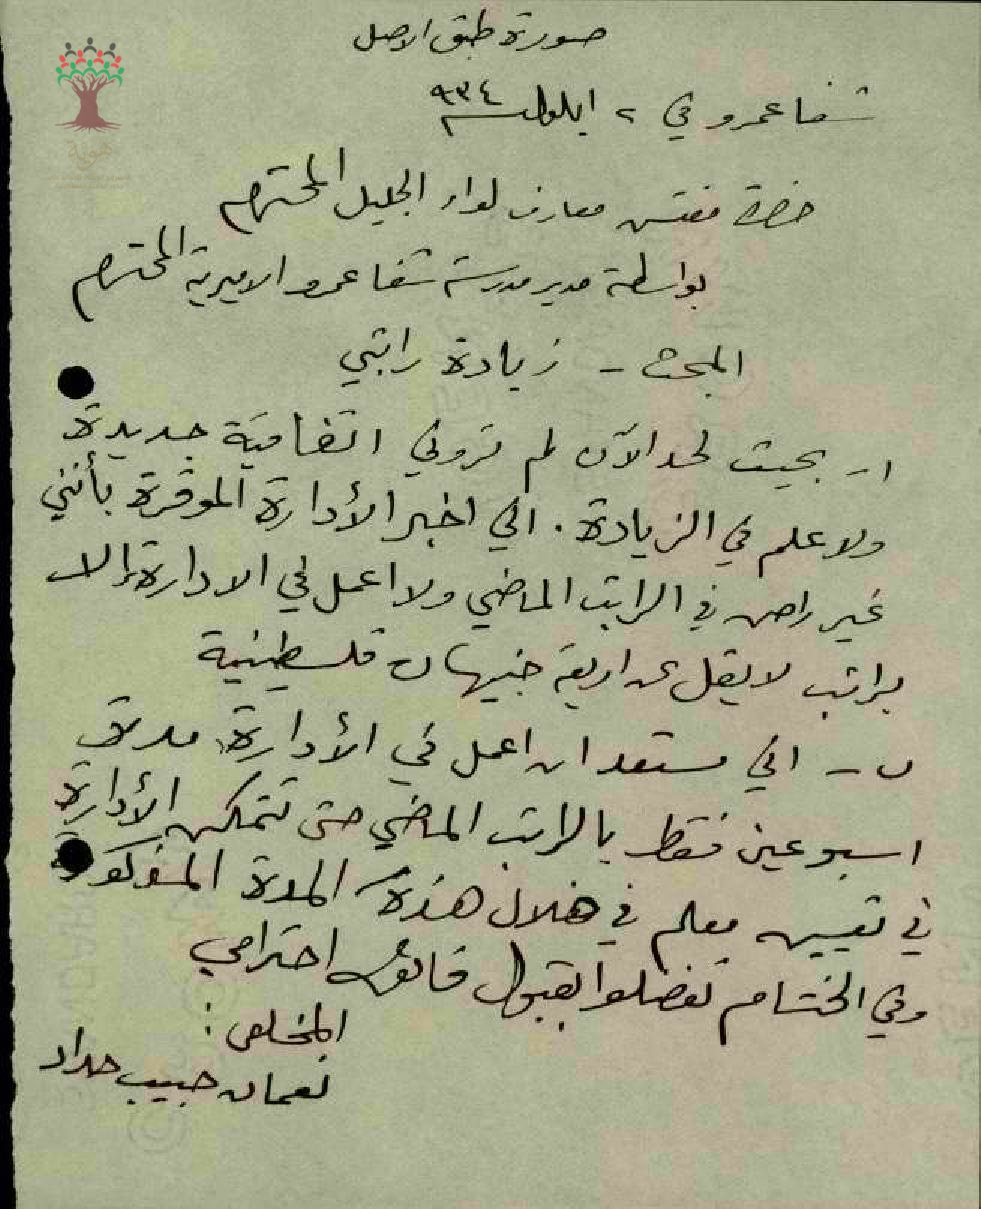 صورة طبق الاصل
شفا عمرو في ٢ ايلول سنة ٩٣٤
هوية
حضرة مفتش معارف لواء الجليل المحترم
بواسطة مدير مدرسة شفا عمرو الاميرية المحترم
المبحث - زيادة راتبي
ا - بحيث لحد الآن لم تروني اتفاقية جديدة
ولا علم في الزيادة . اني اخبر الأدارة الموقرة بأنني
غير راض في الراتب الماضي ولا اعمل في الادارة إلا
براتب لا يقل عن اربعة جنيهات فلسطينية
ب - اني مستعد ان اعمل في الأدارة مدة
اسبوعين فقط بالراتب الماضي حتى تتمكن الأدارة
في تعيين معلم في خلال هذه المدة المذكورة
وفي الختام تفضلوا بقبول فائق احترامي
المخلص :
نعمان حبيب حداد